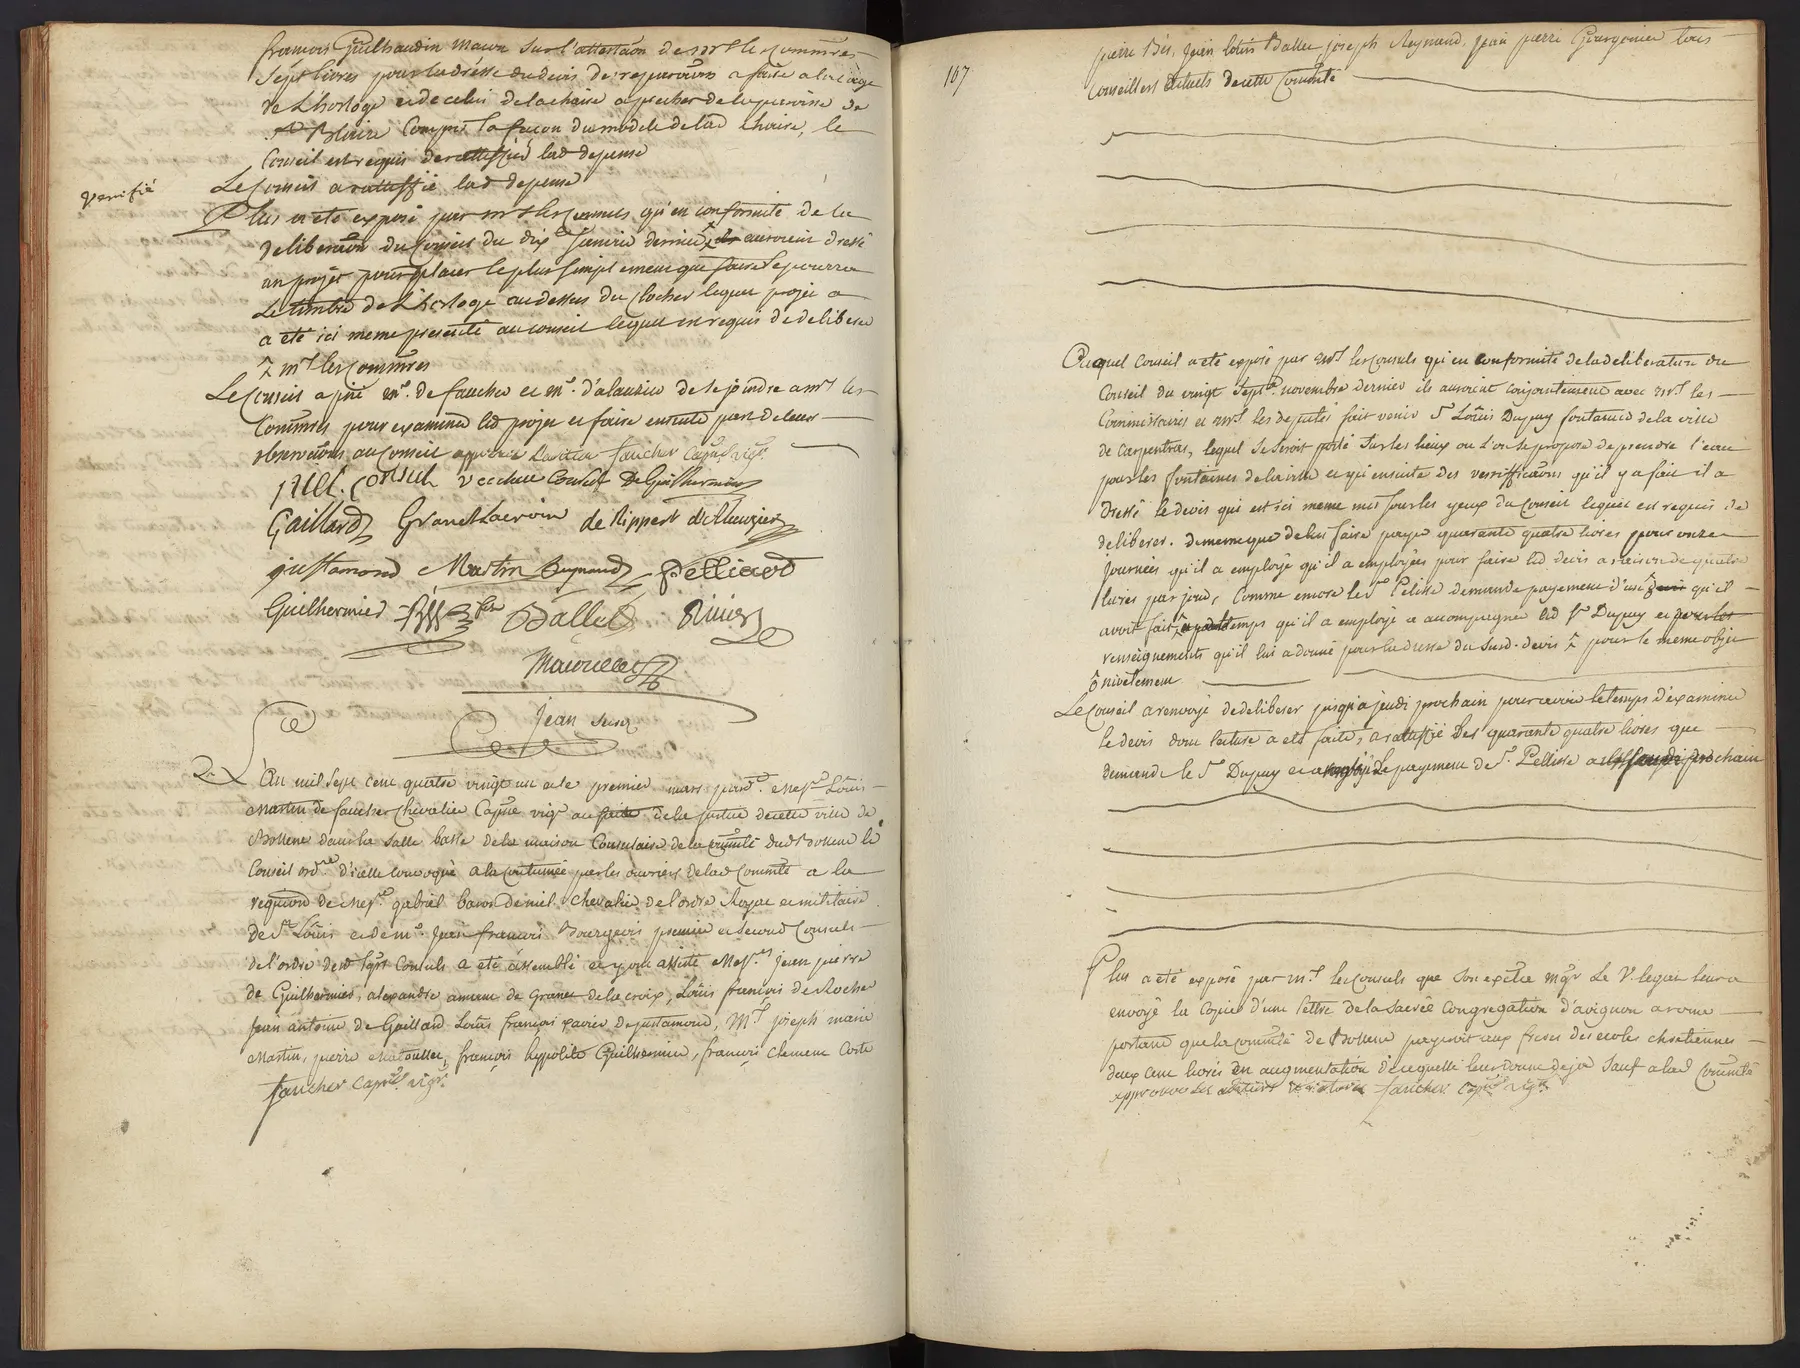 françois Guilhaudin macon sur l'attestaõn de mrs les commres
sept livres pour la dresse du devis de reparaõns a faire a la cage
de L'horloge et de celui de la chaise a precher de la paroisse de
St Blaise compris la façon du modele de lad chaise, le
Conseil est requis de ratiffier lad depense
Le Conseil a ratiffié lad depense
verifié
Plus a eté exposé par mrs les Consuls qu'en conformité de la
deliberaõn du Conseil du dix Janvier dernier ils auroient dressé
un projet pour placer le plus simplement que faire se pourra
Le timbre de L'horloge au dessus du clocher lequel projet a
a eté ici meme presenté au conseil lequel est requis de deliberer
mrs les Commres
Le Conseil a prié mr. de faucher et mr. d'alauzier de se joindre a mrs les
Commres pour examiner led projet et faire ensuite part de leurs
observaõns au Conseil approuvé faucher Capne vigr.
niel. consul Consul De Guilhermier
Gaillard Granet Lacroix de Rippert d'Alauzier
justamond Martin Reynaud Pelliard
Guilhermier Ballet Rivier
Jean Secrr
L'An mil sept cent quatre vingt un et le premier mars pardt Messre Loüis
Martin de faucher Chevalier Capne vigr au fait de la justice de cette ville de
Bollene dans la Salle basse de la maison Consulaire de la Commté dud Bollene le
Conseil ordre d'icelle convoqué a la Coutumée par les couriers de lad Commté a la
requiõn de Messre gabriel baron de niel Chevalier de l'ordre Royal et militaire
de St Loüis et de mr. Jean françois Bourgeois premier et second Consuls
de l'ordre desd sgrs Consuls a eté assemblé et y ont assisté Messrs jean pierre
de Guilhermier, alexandre amant de Granet de la croix, Loüis françois de Rocher
Jean antoine de Gaillard Loüis françois xavier de justamond, Mrs joseph marie
Martin, pierre françois hyppolite Guilhermier, françois Clement Coste
faucher Capne vigr.
167
pierre Bés, Jean loüis Ballet joseph Reynaud, jean pierre Gourgonier tous
Conseillers actuels de cette Commté
Auquel Conseil a eté exposé par mrs les Consuls qu'en conformité de la deliberation du
Conseil du vingt sept novembre dernier ils auroient conjointement avec mrs les
Commissaires et mrs les deputés fait venir Sr Loüis Dupuy fontanier de la ville
de Carpentras, lequel se seroit porté sur les lieux ou l'on se propose de prendre l'eau
pour les fontaines de la ville et qui ensuite des veriffications qu'il y a fait il a
dressé le devis qui est ici meme mis sous les yeux du Conseil lequel est requis de
deliberer. de meme que de lui faire payer quarante quatre livres pour onze
journées qu'il a employé qu'il a employées pour faire led devis a raison de quatre
livres par jour, Comme encore le Sr Pelisse demande payement d'un qu'il
avoit fait temps qu'il a employé a accompagner led Sr Dupuy et pour les
renseignements qu'il lui a donné pour la dresse du susd. devis pour le meme objet
nivelement
Le Conseil a renvoyé de deliberer jusqu'a jeudi prochain pour avoir le temps d'examiner
le devis dont lecture a eté faite, a ratiffié les quarante quatre livres que
demande le Sr Dupuy et a le payement de Sr. Pelisse a jeudi prochain
Plus a eté exposé par mrs les Consuls que Son exçlce Mgr Le V. legat leur a
envoyé la Copie d'une lettre de la Sacrée Congregation d'avignon a rome
portant que la Commté de Bollene payeroit aux freres des ecoles chretiennes
deux cent livres en augmentation de ce qu'elle leur donne deja sauf a lad Commté
approuvé faucher Capne vigr.